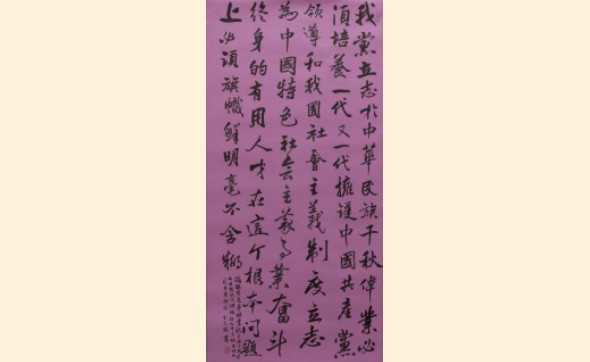 我黨立志於中華民族千秋偉業必
須培養一代又一代擁護中國共產黨
領導和我國社會主義制度立志
為中國特色社会主義事業奮斗
終身的有用人才在這个根本问题
上必須旗幟鮮明毫不含糊